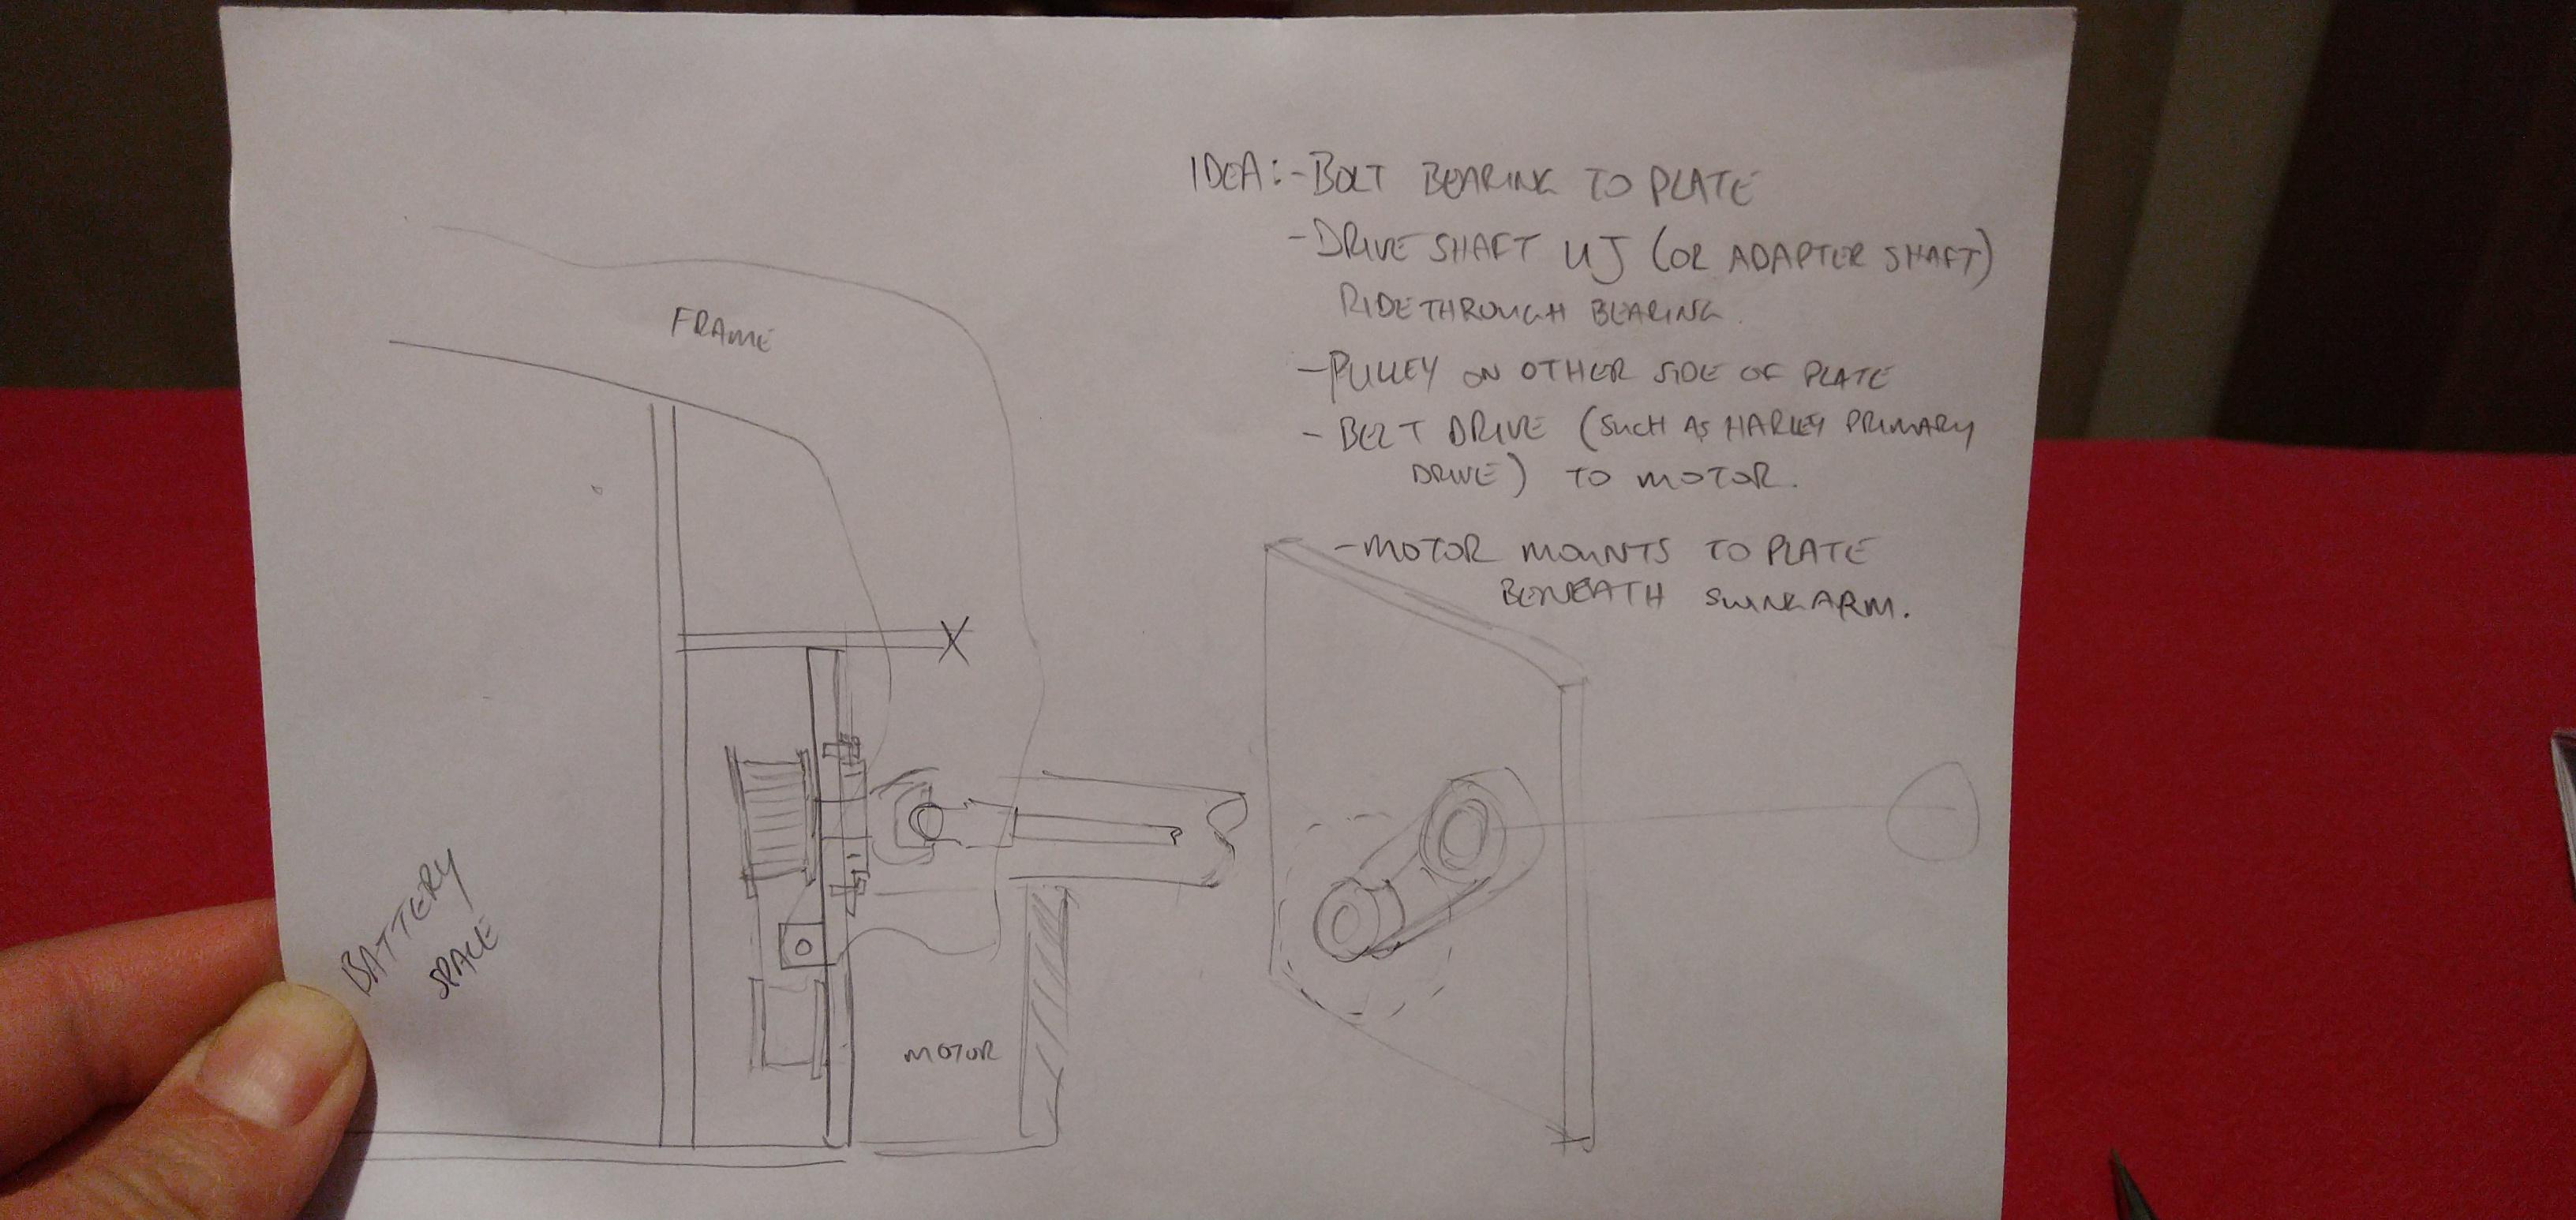 IDEA:- BOLT BEARING TO PLATE
- DRIVE SHAFT UJ (OR ADAPTER SHAFT)
RIDE THROUGH BEARING.
- PULLEY ON OTHER SIDE OF PLATE
- BELT DRIVE (SUCH AS HARLEY PRIMARY
DRIVE) TO MOTOR.
- MOTOR MOUNTS TO PLATE
BENEATH SWINGARM.
FRAME
X
BATTERY
SPACE
MOTOR